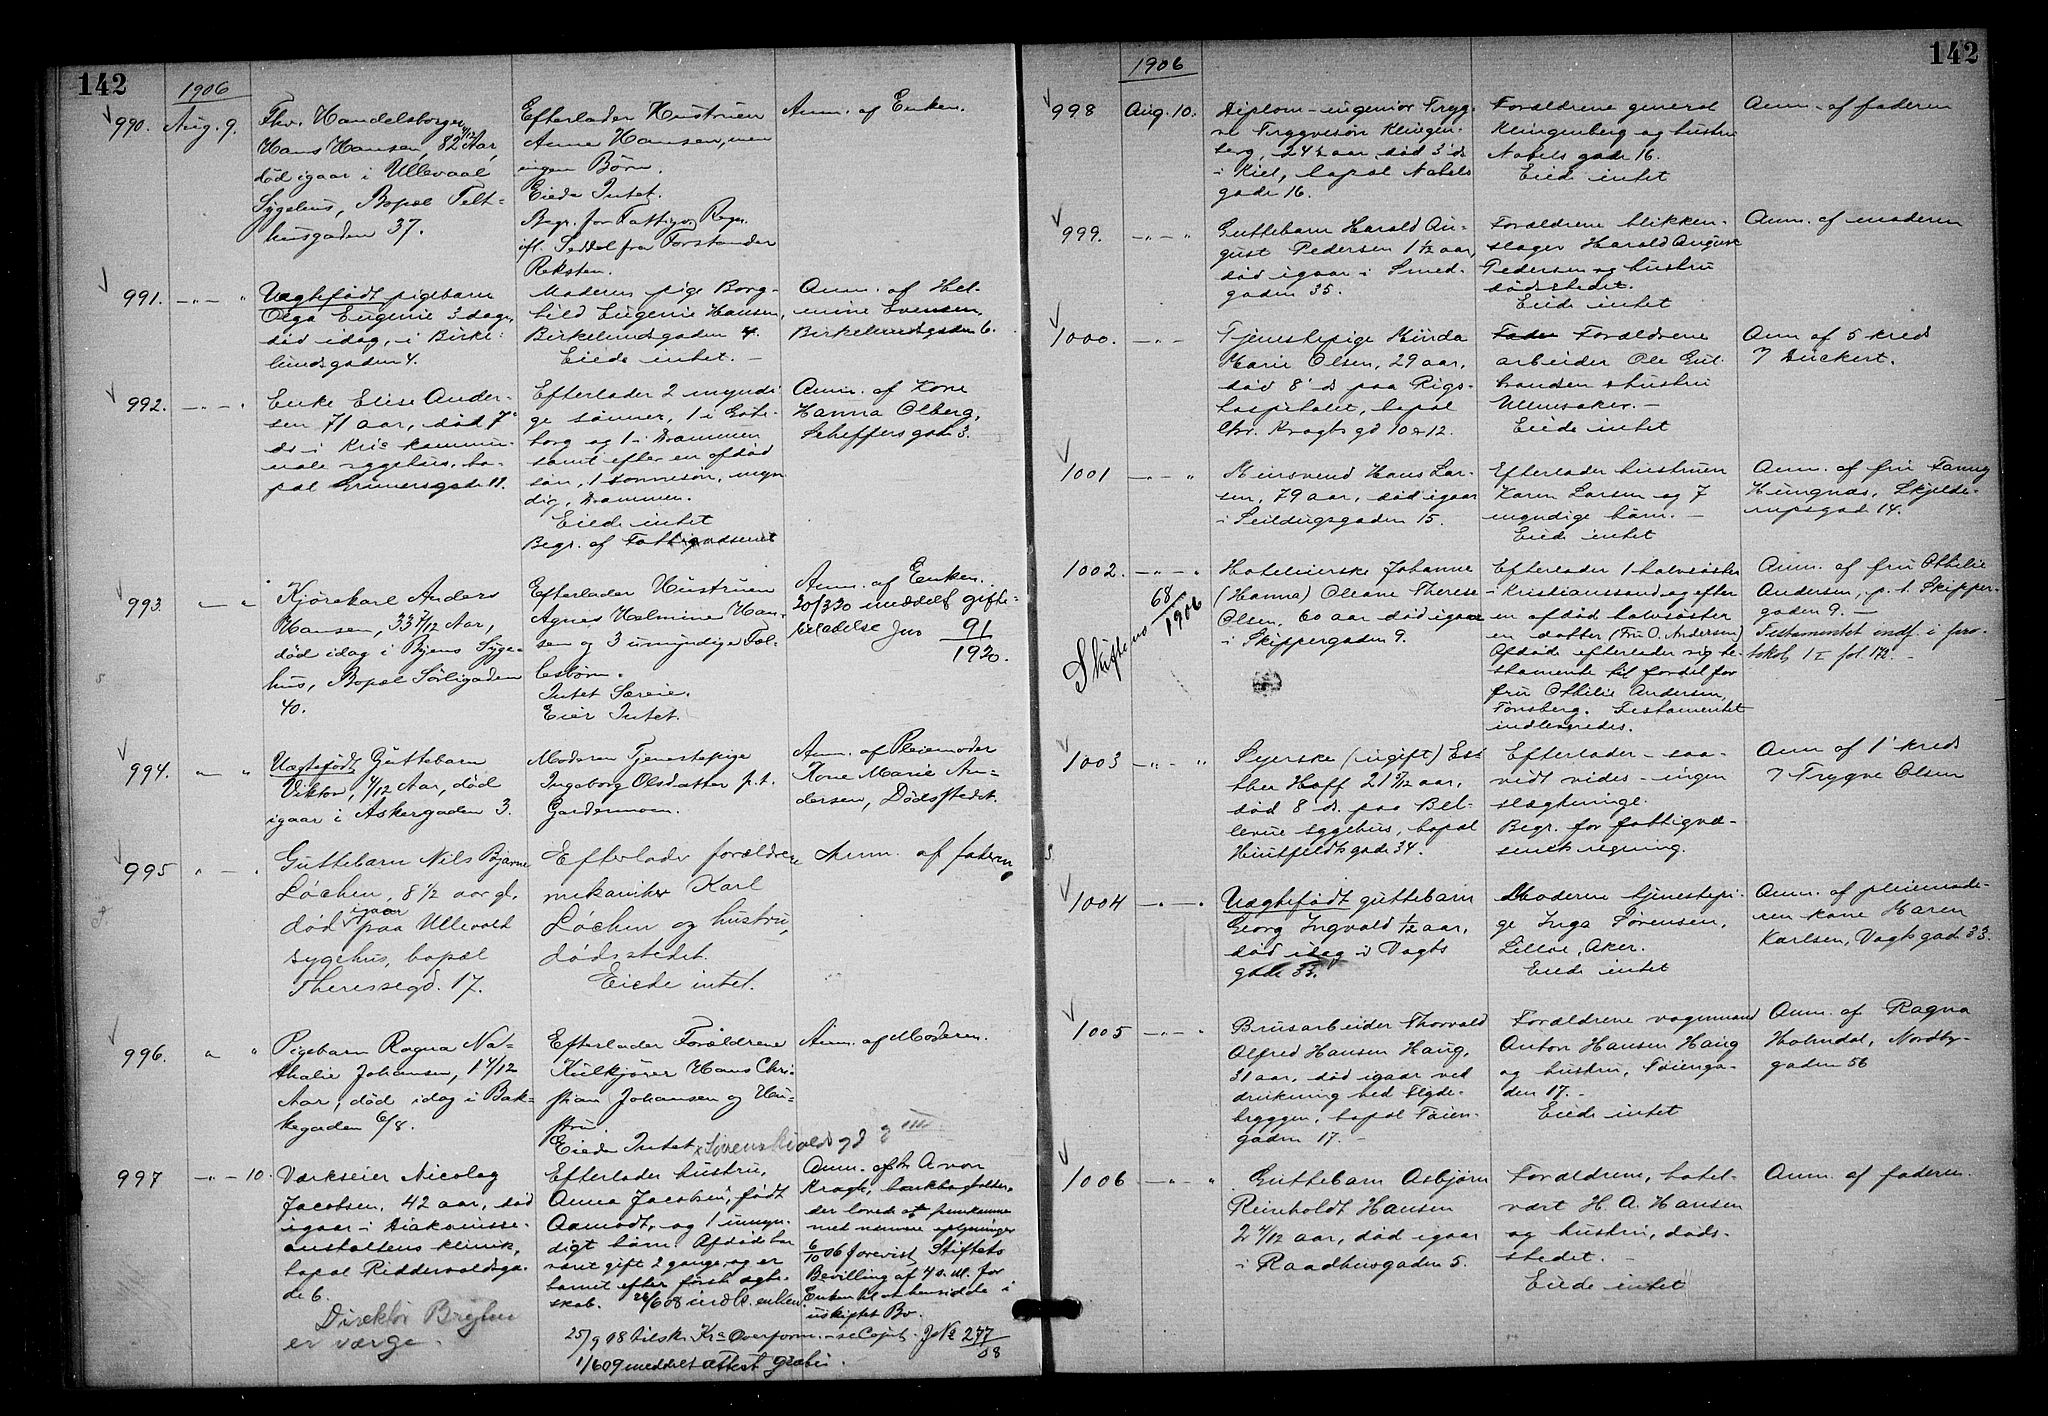 142
1906
990. Aug. 9.
Fhv. Handelsborger
Hans Hansen, 82 4/12 Aar,
død igaar i Ullevaal
Sygehus, Bopæl Telt-
husgaden 37.
Efterlader Hustruen
Anne Hansen, men
ingen Børn.
Eiede Intet.
Begr. for Fattigv. Regn.
ifl. Seddel fra Forstander
Reksten.
Anm. af Enken.
991. -"- "
Uægtefødt pigebarn
Olga Eugenie 3 dage,
død idag, i Birke-
lundsgaden 4.
Moderen pige Borg-
hild Eugenie Hansen,
Birkelundsgaden 4.
Eiede intet. -
Anm. af Hel-
mine Svensen,
Birkelundsgaden 6.
992. -"- "
Enke Elise Ander-
sen 71 aar, død 7'
ds i Kria kommu-
nale sygehus, bo-
pæl Grünersgade 11.
Efterlader 2 myndi-
ge sønner, 1 i Gøte-
borg og 1 i Drammen
samt efter en afdød
søn, 1 sønnesøn, myn
dig, Drammen.
Eiede intet
Begr. af Fattigvæsenet
Anm. af Kone
Hanna Olberg,
Scheffersgade 3.
993. - "
Kjørekarl Anders
Hansen, 33 7/12 Aar,
død idag i Byens Syge-
hus, Bopæl Sørligaden
40.
Efterlader Hustruen
Agnes Halmine Han-
sen og 3 umyndige Fæl-
lesbørn.
Intet Særeie.
Eier Intet.
Anm. af Enken.
20/3 20 meddelt gifte-
tilladelse Jno 91/1920.
994. " "
Uægtefødt Guttebarn
Viktor, 4/12 Aar, død
igaar i Askergaden 3.
Moderen Tjenestepige
Ingeborg Olsdatter p.t.
Gardermoen.
Anm. af Pleiemoder
Kone Marie An-
dersen, Dødsstedet.
995 " - "
Guttebarn Nils Bjarne
Løchen, 8 1/2 aar gl.
død igaar paa Ullevold
sygehus, bopæl
Theressegd. 17.
Efterlader forældrene
mekaniker Karl
Løchen og hustru,
dødsstedet.
Eiede intet.
Anm. af faderen
996. " "
Pigebarn Ragna Na-
thalie Johansen, 1 4/12
Aar, død idag i Bak-
kegaden 6/8.
Efterlader Forældrene
Kulkjører Hans Chri-
stian Johansen og Hu-
stru.
Eiede Intet.
Anm. af Moderen.
997 -"- 10.
Værkseier Nicolay
Jacobsen, 42 aar, død
igaar i Diakonisse-
anstaltens klinik,
bopæl Riddervoldsga-
de 6.
Direktør
er værge.
Efterlader hustru,
Anna Jacobsen, født
Aamodt, og 1 umyn-
digt barn. Afdøde har
været gift 2 gange og er
barnet efter første ægte-
skab.
Anm. af hr. A von
Krogh,
der lovede at fremkomme
med nærmere oplysninger
6/10 06 forevist Stiftets
Bevilling af 4 s.M. for
Enken til at hensidde i
uskiftet Bo.
25/9 08 tilsk. Kra Overform. - se Copib. JNo 277/08
1/6 09 meddelt attest gratis.
142
1906
998 Aug. 10.
Diplom-ingeniør Tryg-
ve Tryggvesøn Klingen-
berg, 24 1/2 aar død 3' ds
i Kiel, bopæl Nobels
gade 16.
Forældrene general
Klingenberg og hustru
Nobels gade 16.
Eiede intet
Anm. af faderen
999. -"- "
Guttebarn Harald Au-
gust Pedersen 1 1/2 aar,
død igaar i Smed-
gaden 35.
Forældrene blikken-
slager Harald August
Pedersen og hustru
dødsstedet.
Eiede intet
Anm. af moderen
1000. -"-
Tjenestepige Minda
Marie Olsen, 29 aar,
død 8' ds paa Rigs-
hospitalet, bopæl
Chr. Kroghs gd 10 & 12.
Fader Forældrene
arbeider Ole Gul-
brandsen & hustru
Ullensaker. -
Eiede intet
Anm af 5 kreds
7 Dückert.
1001 -"- "
Murersvend Hans Lar-
sen, 79 aar, død igaar
i Seildugsgaden 15.
Efterlader hustruen
Karen Larsen og 7
myndige børn. -
Eiede intet
Anm. af fru Fanny
Hungnæs, Skjelde-
rupsgad 14.
1002. -"- "
68/1906
Hotelværtske Johanne
(Hanna) Oleane Therese
Olsen, 60 aar død igaar
i Skippergaden 9.
Efterlader 1 halvsøster
i Kristianssand og efter
en afdød halvsøster
en datter (Fru O. Andersen)
Afdøde efterlader sig te-
stamente til fordel for
fru Othilie Andersen,
Tønsberg. Testamentet
indleveredes.
Anm. af fru Othilie
Andersen, p.t. Skipper-
gaden 9. -
Testamentet indf. i pro-
tokol 1 I fol 172. -
1003 -"- "
Syerske (ugift) Es-
ther Hoff 21 5/12 aar,
død 8' ds. paa Bel-
levue sygehus, bopæl
Huitfeldts gade 34.
Efterlader - saa-
vidt vides - ingen
slægtninge.
Begr. for fattigvæ-
senets regning.
Anm af 1' kreds
7 Trygve Olsen
1004 -"- "
Uægtefødt guttebarn
Georg Ingvald 1/12 aar,
død idag i Vogts
gade 33.
Moderen tjenestepi-
ge Inga Sørensen,
Lilloe, Aker.
Eiede intet
Anm. af pleiemode-
ren kone Maren
Karlsen, Vogts gad. 33.
1005 -"- "
Brusarbeider Thorvald
Alfred Hansen Haug,
31 aar, død igaar ved
drukning ved Slyde-
bryggen, bopæl Tøien-
gaden 17. -
Forældrene vognmand
Anton Hansen Haug
og hustru, Tøienga-
den 17. -
Eiede intet
Anm. af Ragna
Holmdal, Nordby-
gaden 56
1006 -"- "
Guttebarn Asbjørn
Reinholdt Hansen
2 4/12 aar, død igaar
i Raadhusgaden 5.
Forældrene, hotel-
vært H. A. Hansen
og hustru, døds-
stedet. -
Eiede intet
Anm. af faderen.